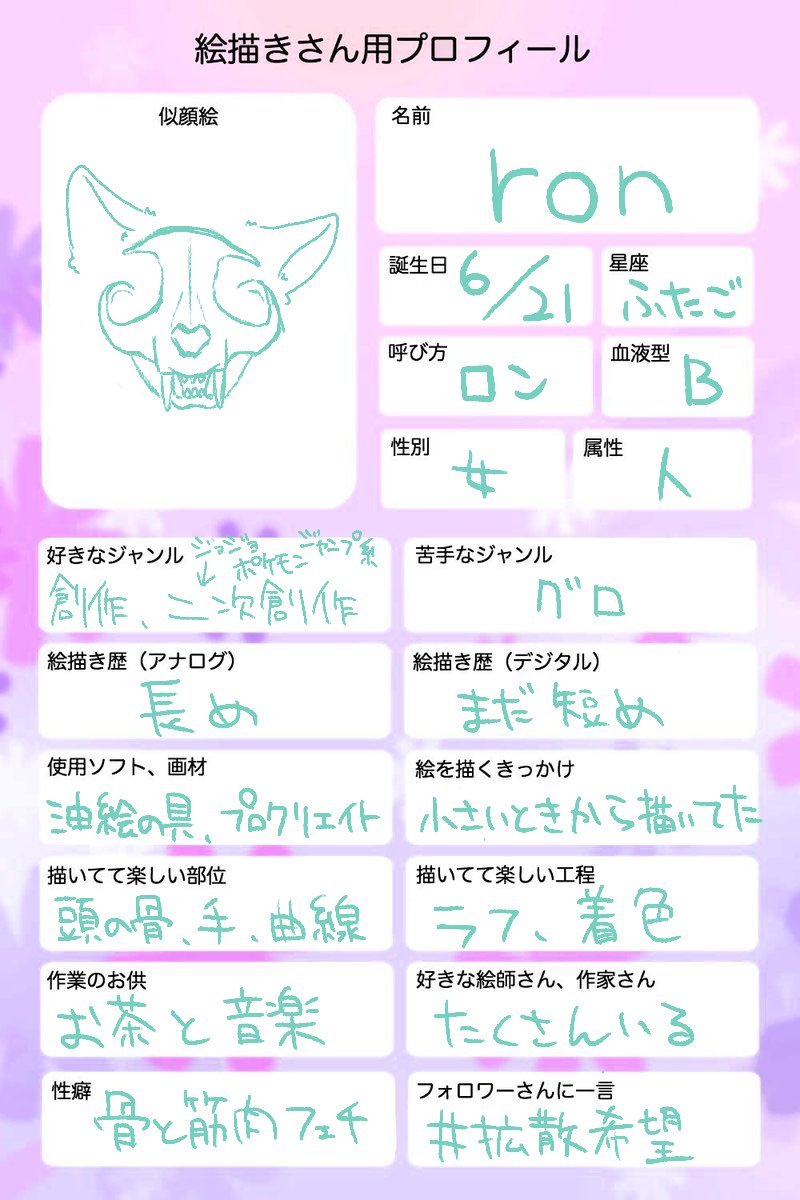 絵描きさん用プロフィール
似顔絵
名前
ron
誕生日 6/21
星座
ふたご
呼び方
ロン
血液型
B
性別
女
属性
人
好きなジャンル ジョジョ ポケモン ジャンプ系
創作、二次創作
苦手なジャンル
グロ
絵描き歴（アナログ）
長め
絵描き歴（デジタル）
まだ短め
使用ソフト、画材
油絵の具、プロクリエイト
絵を描くきっかけ
小さいときから描いてた
描いてて楽しい部位
頭の骨、手、曲線
描いてて楽しい工程
ラフ、着色
作業のお供
お茶と音楽
好きな絵師さん、作家さん
たくさんいる
性癖
骨と筋肉フェチ
フォロワーさんに一言
#拡散希望